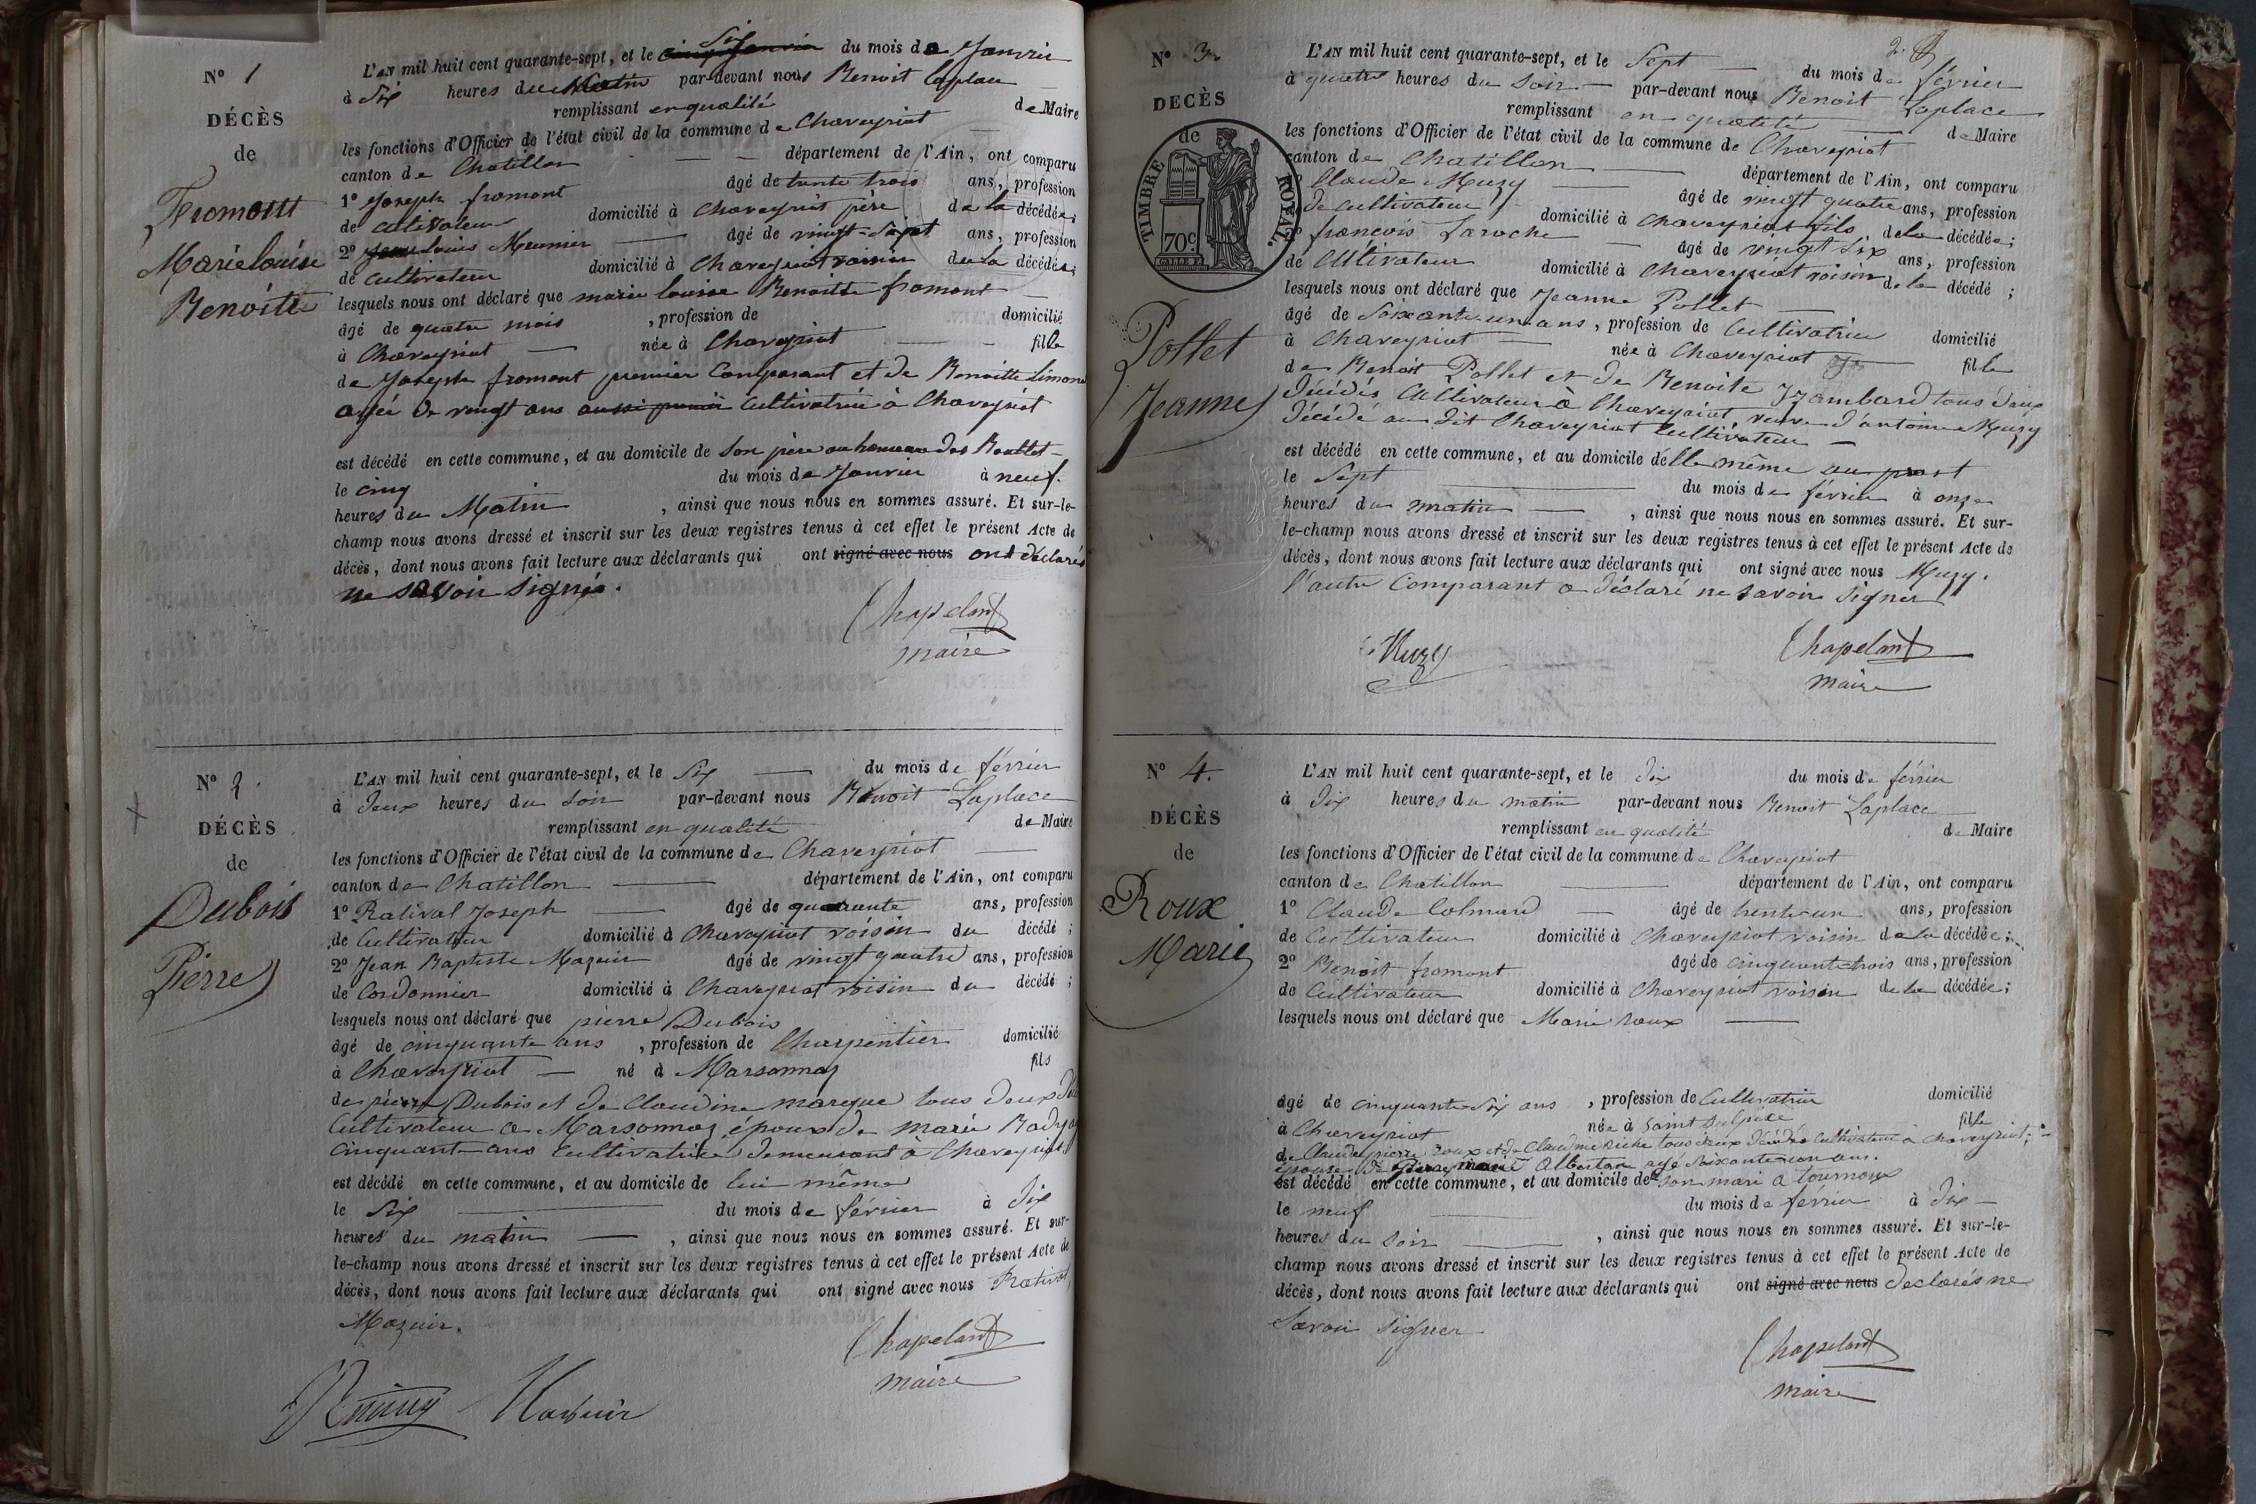 N° 1
DÉCÈS
de
Fromont
Marie louise
Benoite
L'AN mil huit cent quarante-sept, et le cinq janvier Six du mois de Janvier
à Six heures du Matin par-devant nous Benoit Laplace
remplissant en qualité de Maire
les fonctions d'Officier de l'état civil de la commune de Chaveyriat
canton de Chatillon département de l'Ain, ont comparu
1° Joseph fromont âgé de trente trois ans, profession
de cultivateur domicilié à Chaveyriat père de la décédée;
2° louis Meunier âgé de vingt-Sept ans, profession
de Cultivateur domicilié à Chaveyriat voisin de la décédée;
lesquels nous ont déclaré que marie louise Benoitte fromont
âgé de quatre mois , profession de domicilié
à Chaveyriat née à Chaveyriat fille
de Joseph fromont premier Comparant et de Benoitte Limone
agée de vingt ans aussi Cultivatrice à Chaveyriat
est décédé en cette commune, et au domicile de Son père au hameau des
le cinq du mois de Janvier à neuf
heures du Matin , ainsi que nous nous en sommes assuré. Et sur-le-
champ nous avons dressé et inscrit sur les deux registres tenus à cet effet le présent Acte de
décès, dont nous avons fait lecture aux déclarants qui ont signé avec nous ont déclarés
ne savoir signé.
Chapeland
maire
N° 2.
DÉCÈS
de
Dubois
Pierre
L'AN mil huit cent quarante-sept, et le Six du mois de février
à deux heures du soir par-devant nous Benoit Laplace
remplissant en qualité de Maire
les fonctions d'Officier de l'état civil de la commune de Chaveyriat
canton de Chatillon département de l'Ain, ont comparu
1° Rativat Joseph âgé de quarante ans, profession
de Cultivateur domicilié à Chaveyriat voisin du décédé;
2° Jean Baptiste Mazuir âgé de vingt quatre ans, profession
de Cordonnier domicilié à Chaveyriat voisin du décédé;
lesquels nous ont déclaré que pierre Dubois
âgé de cinquante ans , profession de Charpentier domicilié
à Chaveyriat né à Marsonnas fils
de pierre Dubois et de Claudine tous deux
Cultivateur à Marsonnas, époux de marie
cinquante ans Cultivatrice demeurant à Chaveyriat
est décédé en cette commune, et au domicile de lui même
le Six du mois de février à Dix
heures du matin , ainsi que nous nous en sommes assuré. Et sur-
le-champ nous avons dressé et inscrit sur les deux registres tenus à cet effet le présent Acte de
décès, dont nous avons fait lecture aux déclarants qui ont signé avec nous Rativat
Mazuir.
Chapeland
maire
Mazuir
2.
N° 3
DECÈS
de
TIMBRE ROYAL.
70c
Pollet
Jeanne
L'AN mil huit cent quarante-sept, et le Sept du mois de février
à quatre heures du soir par-devant nous Benoit Laplace
remplissant en qualité de Maire
les fonctions d'Officier de l'état civil de la commune de Chaveyriat
canton de Chatillon département de l'Ain, ont comparu
Claude Muzy âgé de vingt quatre ans, profession
de cultivateur domicilié à Chaveyriat fils de la décédée;
françois Laroche âgé de vingt Six ans, profession
de Cultivateur domicilié à Chaveyriat voisin de la décédé;
lesquels nous ont déclaré que Jeanne Pollet
âgé de Soixante-un ans, profession de Cultivatrice domicilié
à Chaveyriat née à Chaveyriat fille
de Benoit Pollet et de Benoite Jzambard tous deux
Décédés Cultivateur à Chaveyriat, veuve d'antoine Muzy
Décédé au dit Chaveyriat Cultivateur
est décédé en cette commune, et au domicile d'elle même
le Sept du mois de février à onze
heures du matin , ainsi que nous nous en sommes assuré. Et sur-
le-champ nous avons dressé et inscrit sur les deux registres tenus à cet effet le présent Acte de
décès, dont nous avons fait lecture aux déclarants qui ont signé avec nous Muzy.
l'autre Comparant a déclaré ne savoir Signer
Muzy
Chapeland
maire
N° 4.
DÉCÈS
de
Roux
Marie
L'AN mil huit cent quarante-sept, et le Dix du mois de février
à Dix heures du matin par-devant nous Benoit Laplace
remplissant en qualité de Maire
les fonctions d'Officier de l'état civil de la commune de Chaveyriat
canton de Chatillon département de l'Ain, ont comparu
1° Claude Colmard âgé de trente-un ans, profession
de Cultivateur domicilié à Chaveyriat voisin de la décédée;
2° Benoit fromont âgé de cinquante trois ans, profession
de Cultivateur domicilié à Chaveyriat voisin de la décédée;
lesquels nous ont déclaré que Marie roux
âgé de cinquante-Six ans , profession de Cultivatrice domicilié
à Chaveyriat née à Saint Sulpice fille
de Claude pierre roux et de Claudine tous deux décédés Cultivateur à Chaveyriat;
épouse de Pierre marie Albertan agé Soixante-un ans.
est décédé en cette commune, et au domicile de son mari à tournoux
le neuf du mois de fevrier à Dix
heures du soir , ainsi que nous nous en sommes assuré. Et sur-le-
champ nous avons dressé et inscrit sur les deux registres tenus à cet effet le présent Acte de
décès, dont nous avons fait lecture aux déclarants qui ont signé avec nous declarés ne
Savoir Signer
Chapeland
maire